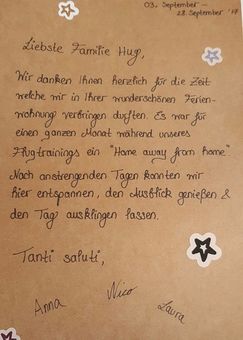 03. September –
28. September '17
Liebste Familie Hug,
Wir danken Ihnen herzlich für die Zeit
welche wir in Ihrer wunderschönen Ferien-
wohnung verbringen durften. Es war für
einen ganzen Monat während unseres
Flugtrainings ein "Home away from home".
Nach anstrengenden Tagen konnten wir
hier entspannen, den Ausblick genießen &
den Tag ausklingen lassen.
Tanti saluti,
Anna Nico Laura